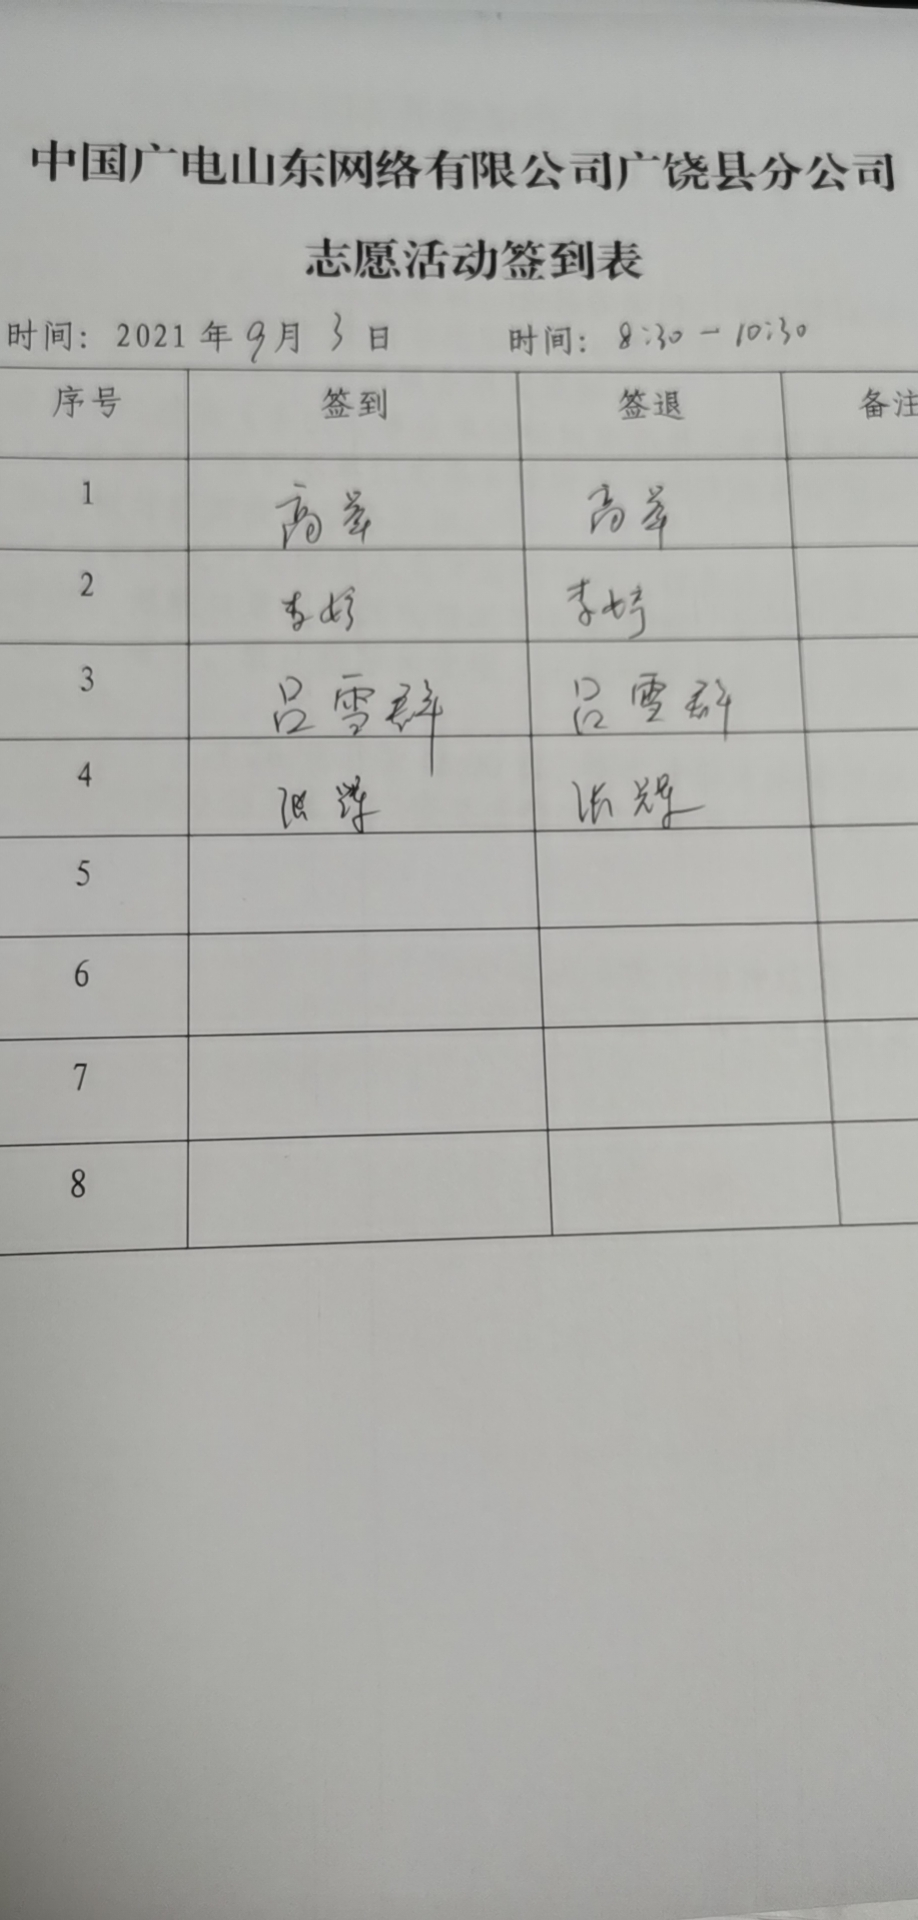 中国广电山东网络有限公司广饶县分公司
志愿活动签到表
时间：2021年9月3日 时间：8:30-10:30
序号 签到 签退 备注
1 高 高
2 李婷 李婷
3 吕雪群 吕雪群
4 张辉 张辉
5
6
7
8